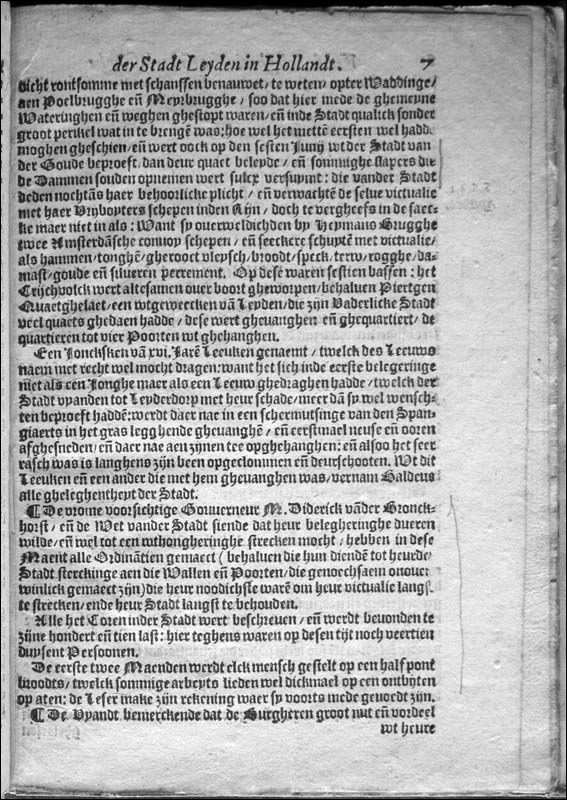 der Stadt Leyden in Hollandt. 7
dicht rontsomme met schanssen benauwet/ te weten/ opter Waddinge/
aen Poelbrugghe eñ Meyrbrugghe / soo dat hier mede de ghemeyne
Wateringhen eñ weghen ghestopt waren/ eñ inde Stadt qualick sonder
groot perikel wat in te brengẽ was: hoe wel het mettẽ eersten wel hadd
moghen gheschien/ eñ wert oock op den sesten Junij wt der Stadt van
der Goude beproeft/ dan deur quaet beleyde/ eñ sommighe slapers die
de Dammen souden opnemen wert sulcx versuymt: die vander Stadt
deden nochtãs haer behoorlicke plicht / eñ verwachtẽ de selue victualie
met haer Vrybuyters schepen inden Rijn / doch te vergheefs in de saec-
ke maer niet in als: Want sy ouerweldichden by Heymans Brugghe
twee Amsterdãsche conuoy schepen / eñ seeckere schuytẽ met victualie/
als hammen/ tonghẽ/ gherooct vleysch/ broodt/ speck/ terw/ rogghe/ da-
mast/ goude eñ silueren perrement. Op desẽ waren sestien bassen: het
Crijchvolck wert altesamen ouer boort gheworpen/ behaluen Piertgen
Quaetghelaet/ een wtgeweecken vã Leyden/ die zijn Vaderlicke Stadt
veel quaets ghedaen hadde / dese wert gheuanghen eñ ghequartiert/ de
quartieren tot vier Poorten wt ghehanghen.
Een Joncksken vã xvi. Jarẽ Leeuken genaemt / twelck des Leeuws
naem met recht wel mocht dragen: want het sich inde eerste belegeringe
niet als een Jonghe maer als een Leeuw ghedraghen hadde / twelck der
Stadt vyanden tot Leyderdorp met heur schade/ meer dã sy wel wensch-
ten beproeft haddẽ: werdt daer nae in een schermutsinge van den Span-
giaerts in het gras legghende gheuanghẽ / eñ eerstmael neuse eñ ooren
afghesneden/ eñ daer nae aen zynen tee opghehanghen: eñ alsoo het seer
rasch was is langhens zijn been opgeclommen eñ deurschooten. Wt dit
Leeuken eñ een ander die met hem gheuanghen was/ vernam Baldeus
alle gheleghentheyt der Stadt.
¶ De vrome voorsichtige Gouuerneur M. Diderick vãder Bronck-
horst / eñ de Wet vander Stadt siende dat heur belegheringhe dueren
wilde/ eñ wel tot een wthongheringhe strecken mocht / hebben in dese
Maent alle Ordinãtien gemaect ( behaluen die hun diendẽ tot heurder
Stadt sterckinge aen die Wallen eñ Poorten/ die genoechsaem onouer
winlick gemaect zijn) die heur noodichste warẽ om heur victualie langst
te strecken/ ende heur Stadt langst te behouden.
Alle het Coren inder Stadt wert beschreuen/ eñ werdt beuonden te
zijne hondert eñ tien last: hier teghens waren op desen tijt noch veertien
duysent Persoonen.
De eerste twee Maenden werdt elck mensch gestelt op een half pont
broodts/ twelck sommige arbeyts lieden wel dickmael op een ontbyten
op aten: de Leser make zijn rekening waer sy voorts mede geuoedt zijn.
¶ De Vyandt bemerckende dat de Burgheren groot nut eñ vordeel
wt heure